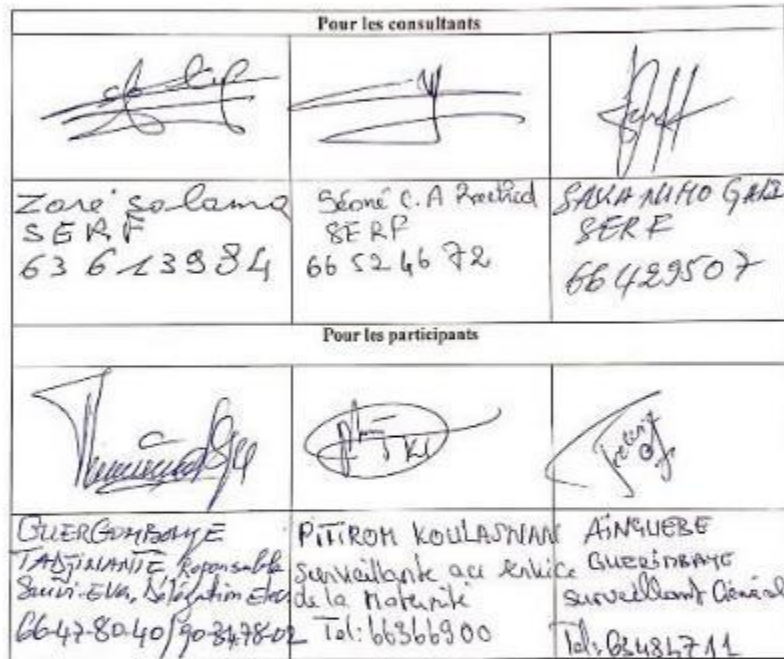 Pour les consultants
Zoré Salama
SERF
63 61 39 84
Séoné C.A
SERF
66 52 46 72
SERF
66 42 95 07
Pour les participants
GUERGOMBAYE
TADJINANTE Reponsable
Suivi-Eva, Délégation
66-47-80-40/90-84-78-02
PITIROM
Surveillante au service
de la Maternité
Tel: 66366900
AÏNGUEBE
GUERIMBAYE
Surveillant Général
Tel: 63484711